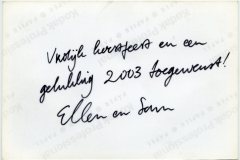 Vrolijk kerstfeest en een
gelukkig 2003 toegewenst!
Ellen en Sam